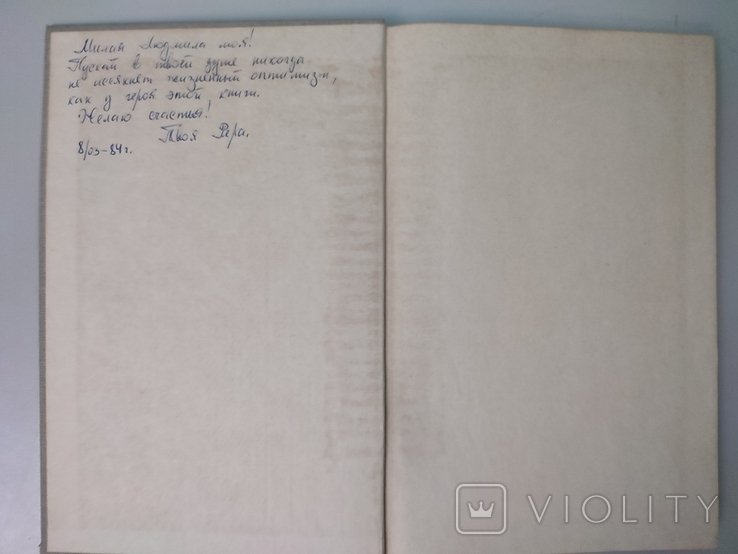 Милая Людмила моя!
Пускай в твоей душе никогда
не иссякнет жизненный оптимизм,
как у героя этой книги.
Желаю счастья!
Твоя Рера.
8/03-84 г.
VIOLITY